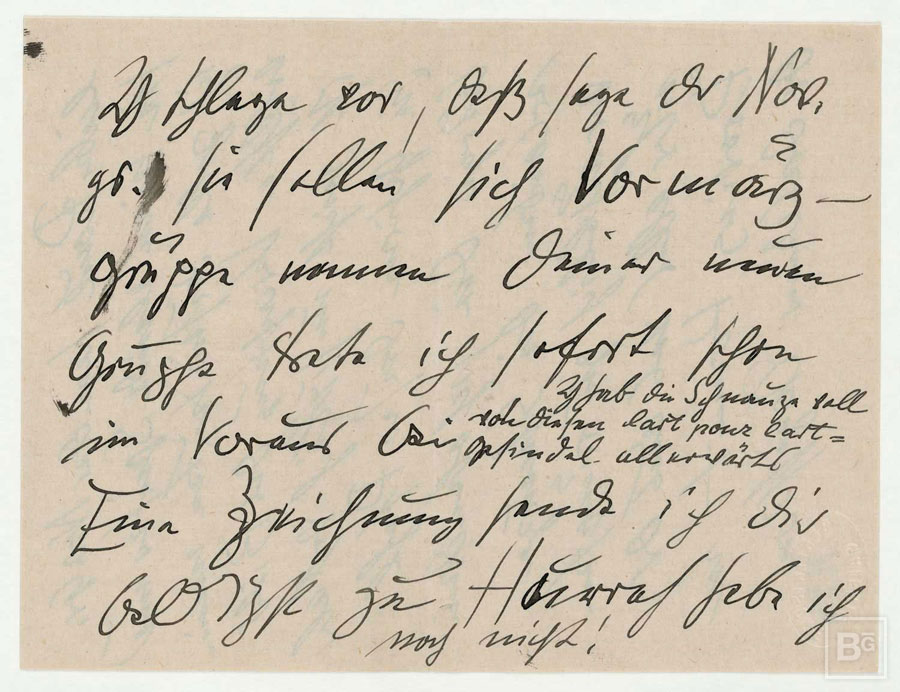 Ich schlage vor, daß sage der Nov.
gr. sie sollen sich Vormärz-
gruppe nennen Deiner neuen
Gruppe trete ich sofort schon
im Voraus bei
Ich hab die Schnauze voll
von diesen lart pour lart=
gesindel allerwärts
Eine Zeichnung sende ich dir
zu Hourrah habe ich
noch nicht!
BG